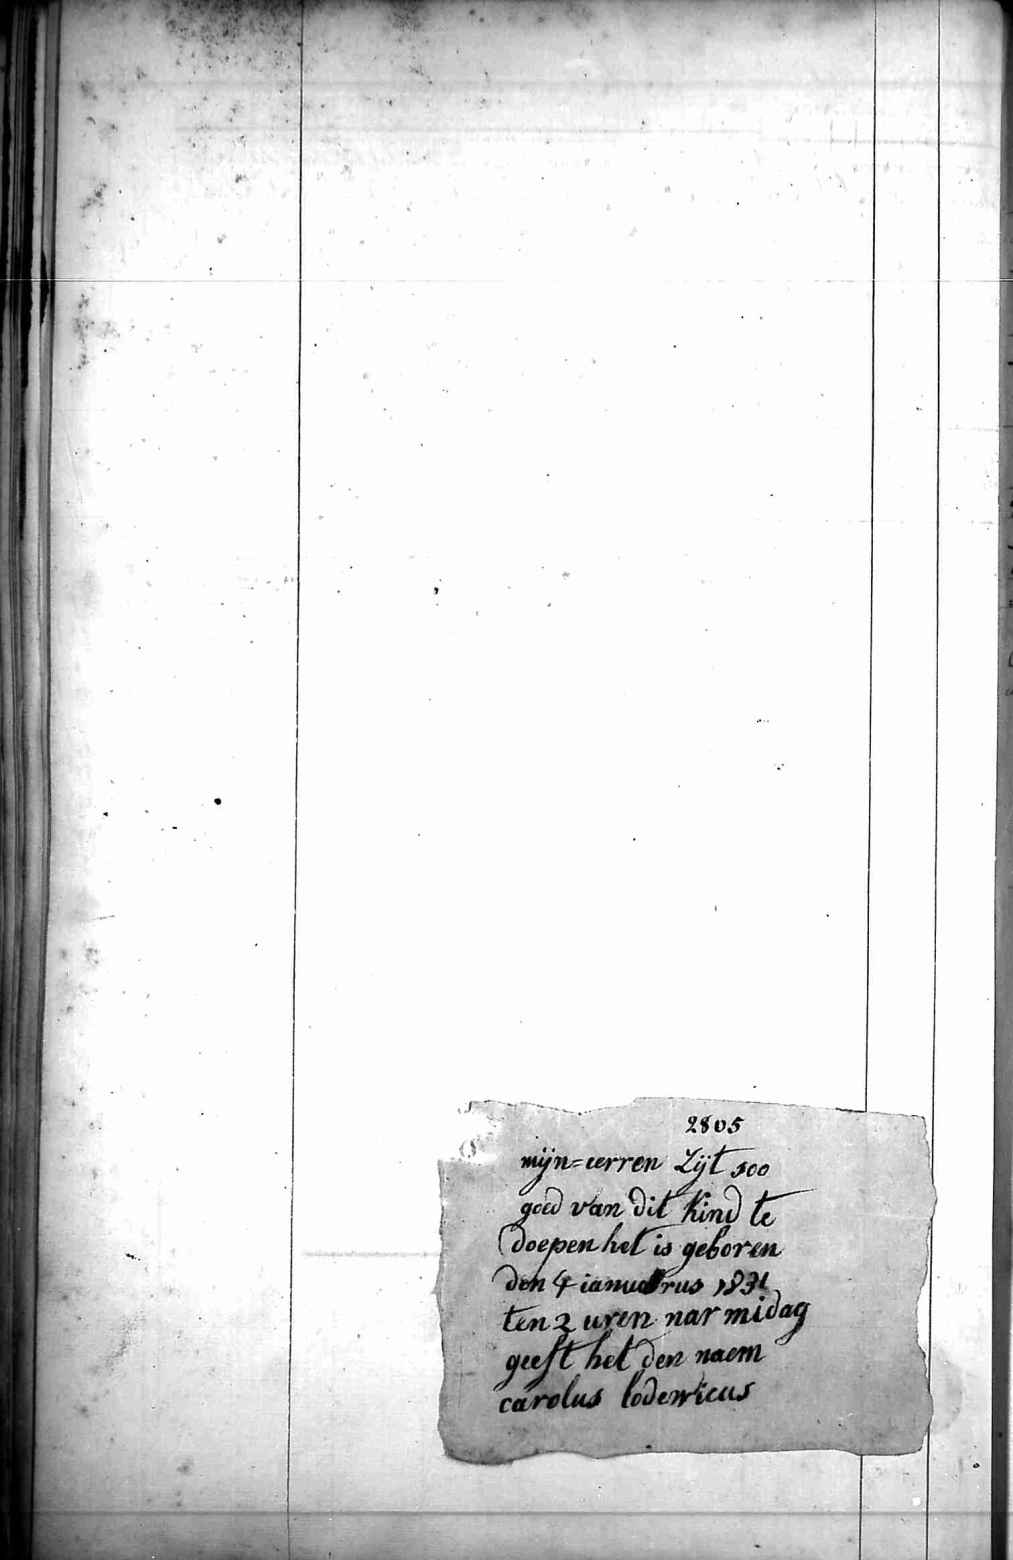 2805
mijn=eerren Zijt soo
goed van dit Kind te
doepen het is geboren
den 4 ianuarus 1831
ten 2 uren nar midag
geeft het den naem
carolus lodewicus